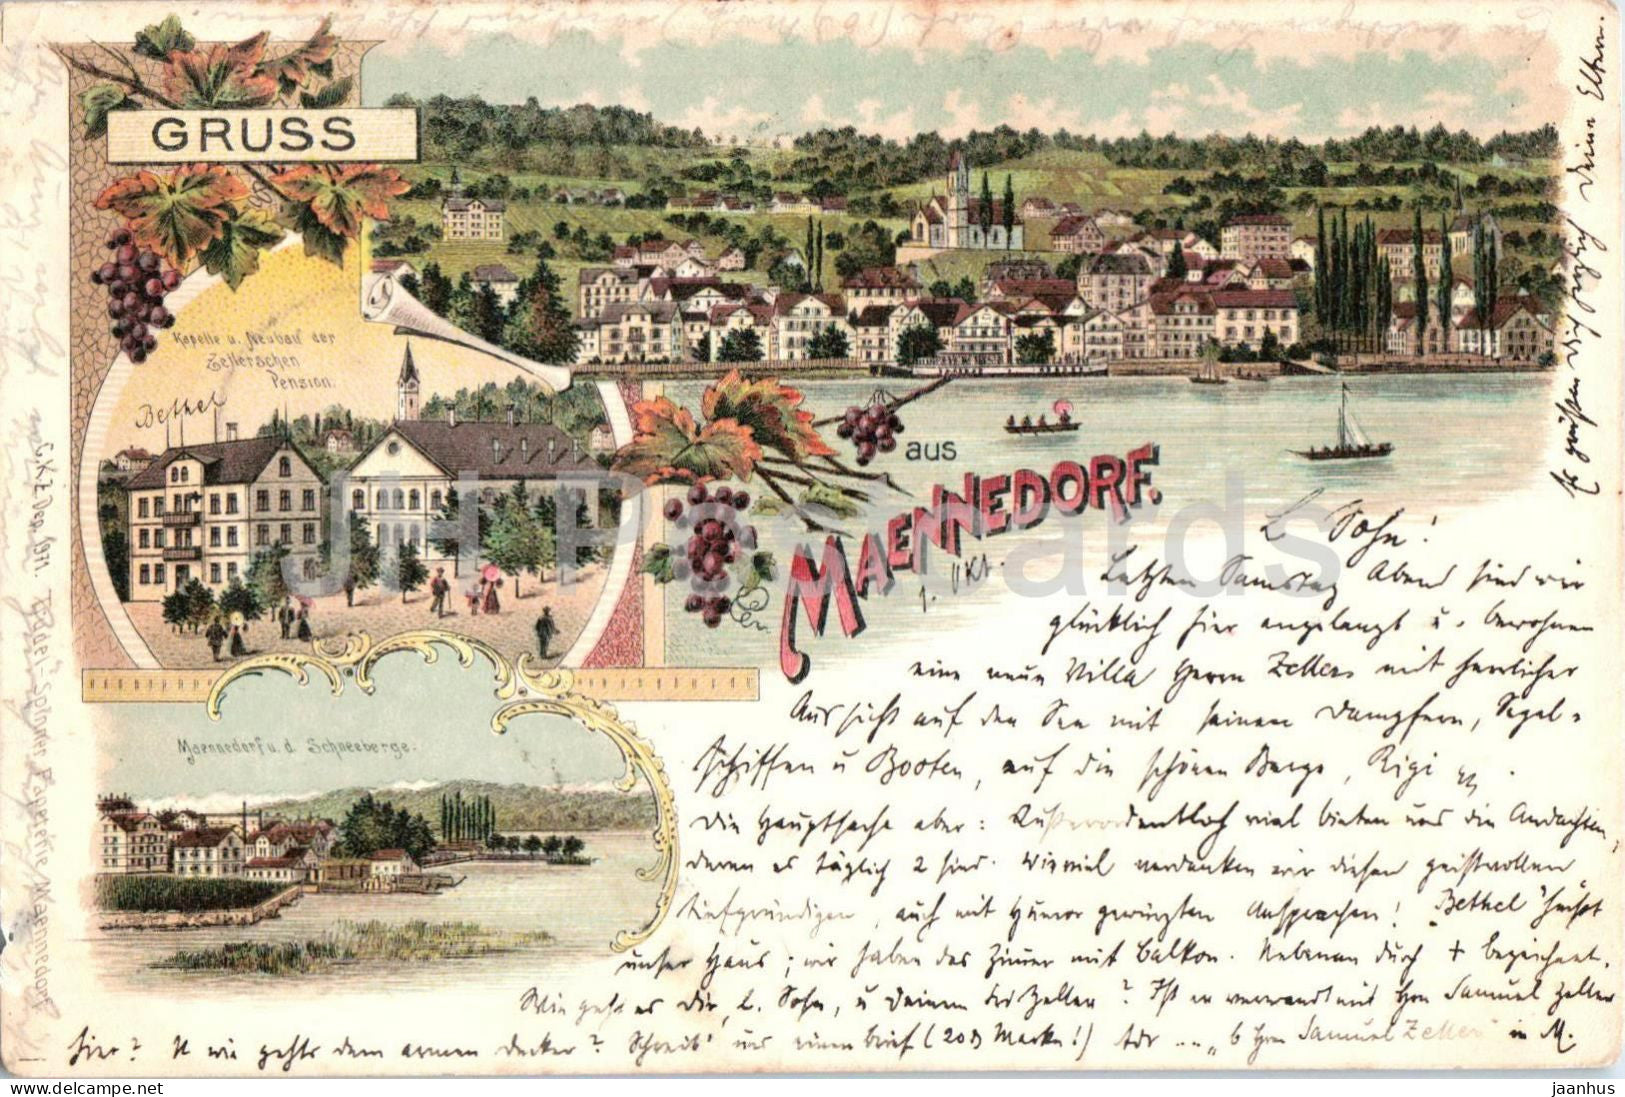 GRUSS
aus
MAENNEDORF.
Kapelle u. Neubau der
Zellerschen
Pension.
Bethel
Maennedorf u. d. Schneeberge.
C. K. Z. Dep. 1971. Rödel-Spinner Papeterie Maennedorf
1. Okt.
L. Sohn!
Letzten Samstag Abend sind wir
glücklich hier angelangt u. bewohnen
eine neue Villa Herrn Zellers mit herrlicher
Aussicht auf den See mit seinen Dampfern, Segel-
schiffen u Booten, auf die schönen Berge, Rigi
Die Hauptsache aber: Außerordentlich viel bieten uns die Andachten,
deren es täglich 2 sind. Wieviel verdanken wir diesen geistvollen
tiefgründigen, auch mit Humor gewürzten Ansprachen! "Bethel" heißt
unser Haus; wir haben das Zimmer mit Balkon. Nebenan durch + bezeichnet.
Wie geht es Dir, L. Sohn, u Deinem Zeller? Ist er verwandt mit Hrn Samuel Zeller
hier? U wie gehts dem armen Decker? Schreib' uns einen Brief (20 Marke!) Adr b Hrn Samuel Zeller in M.
Es grüßen Dich herzlich Deine Eltern.
JH Postcards
jaanhus
delcampe.net